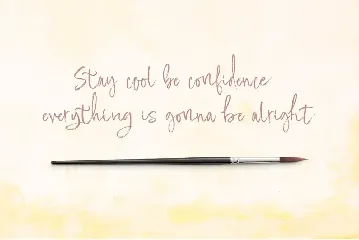 Stay cool be confidence
everything is gonna be alright